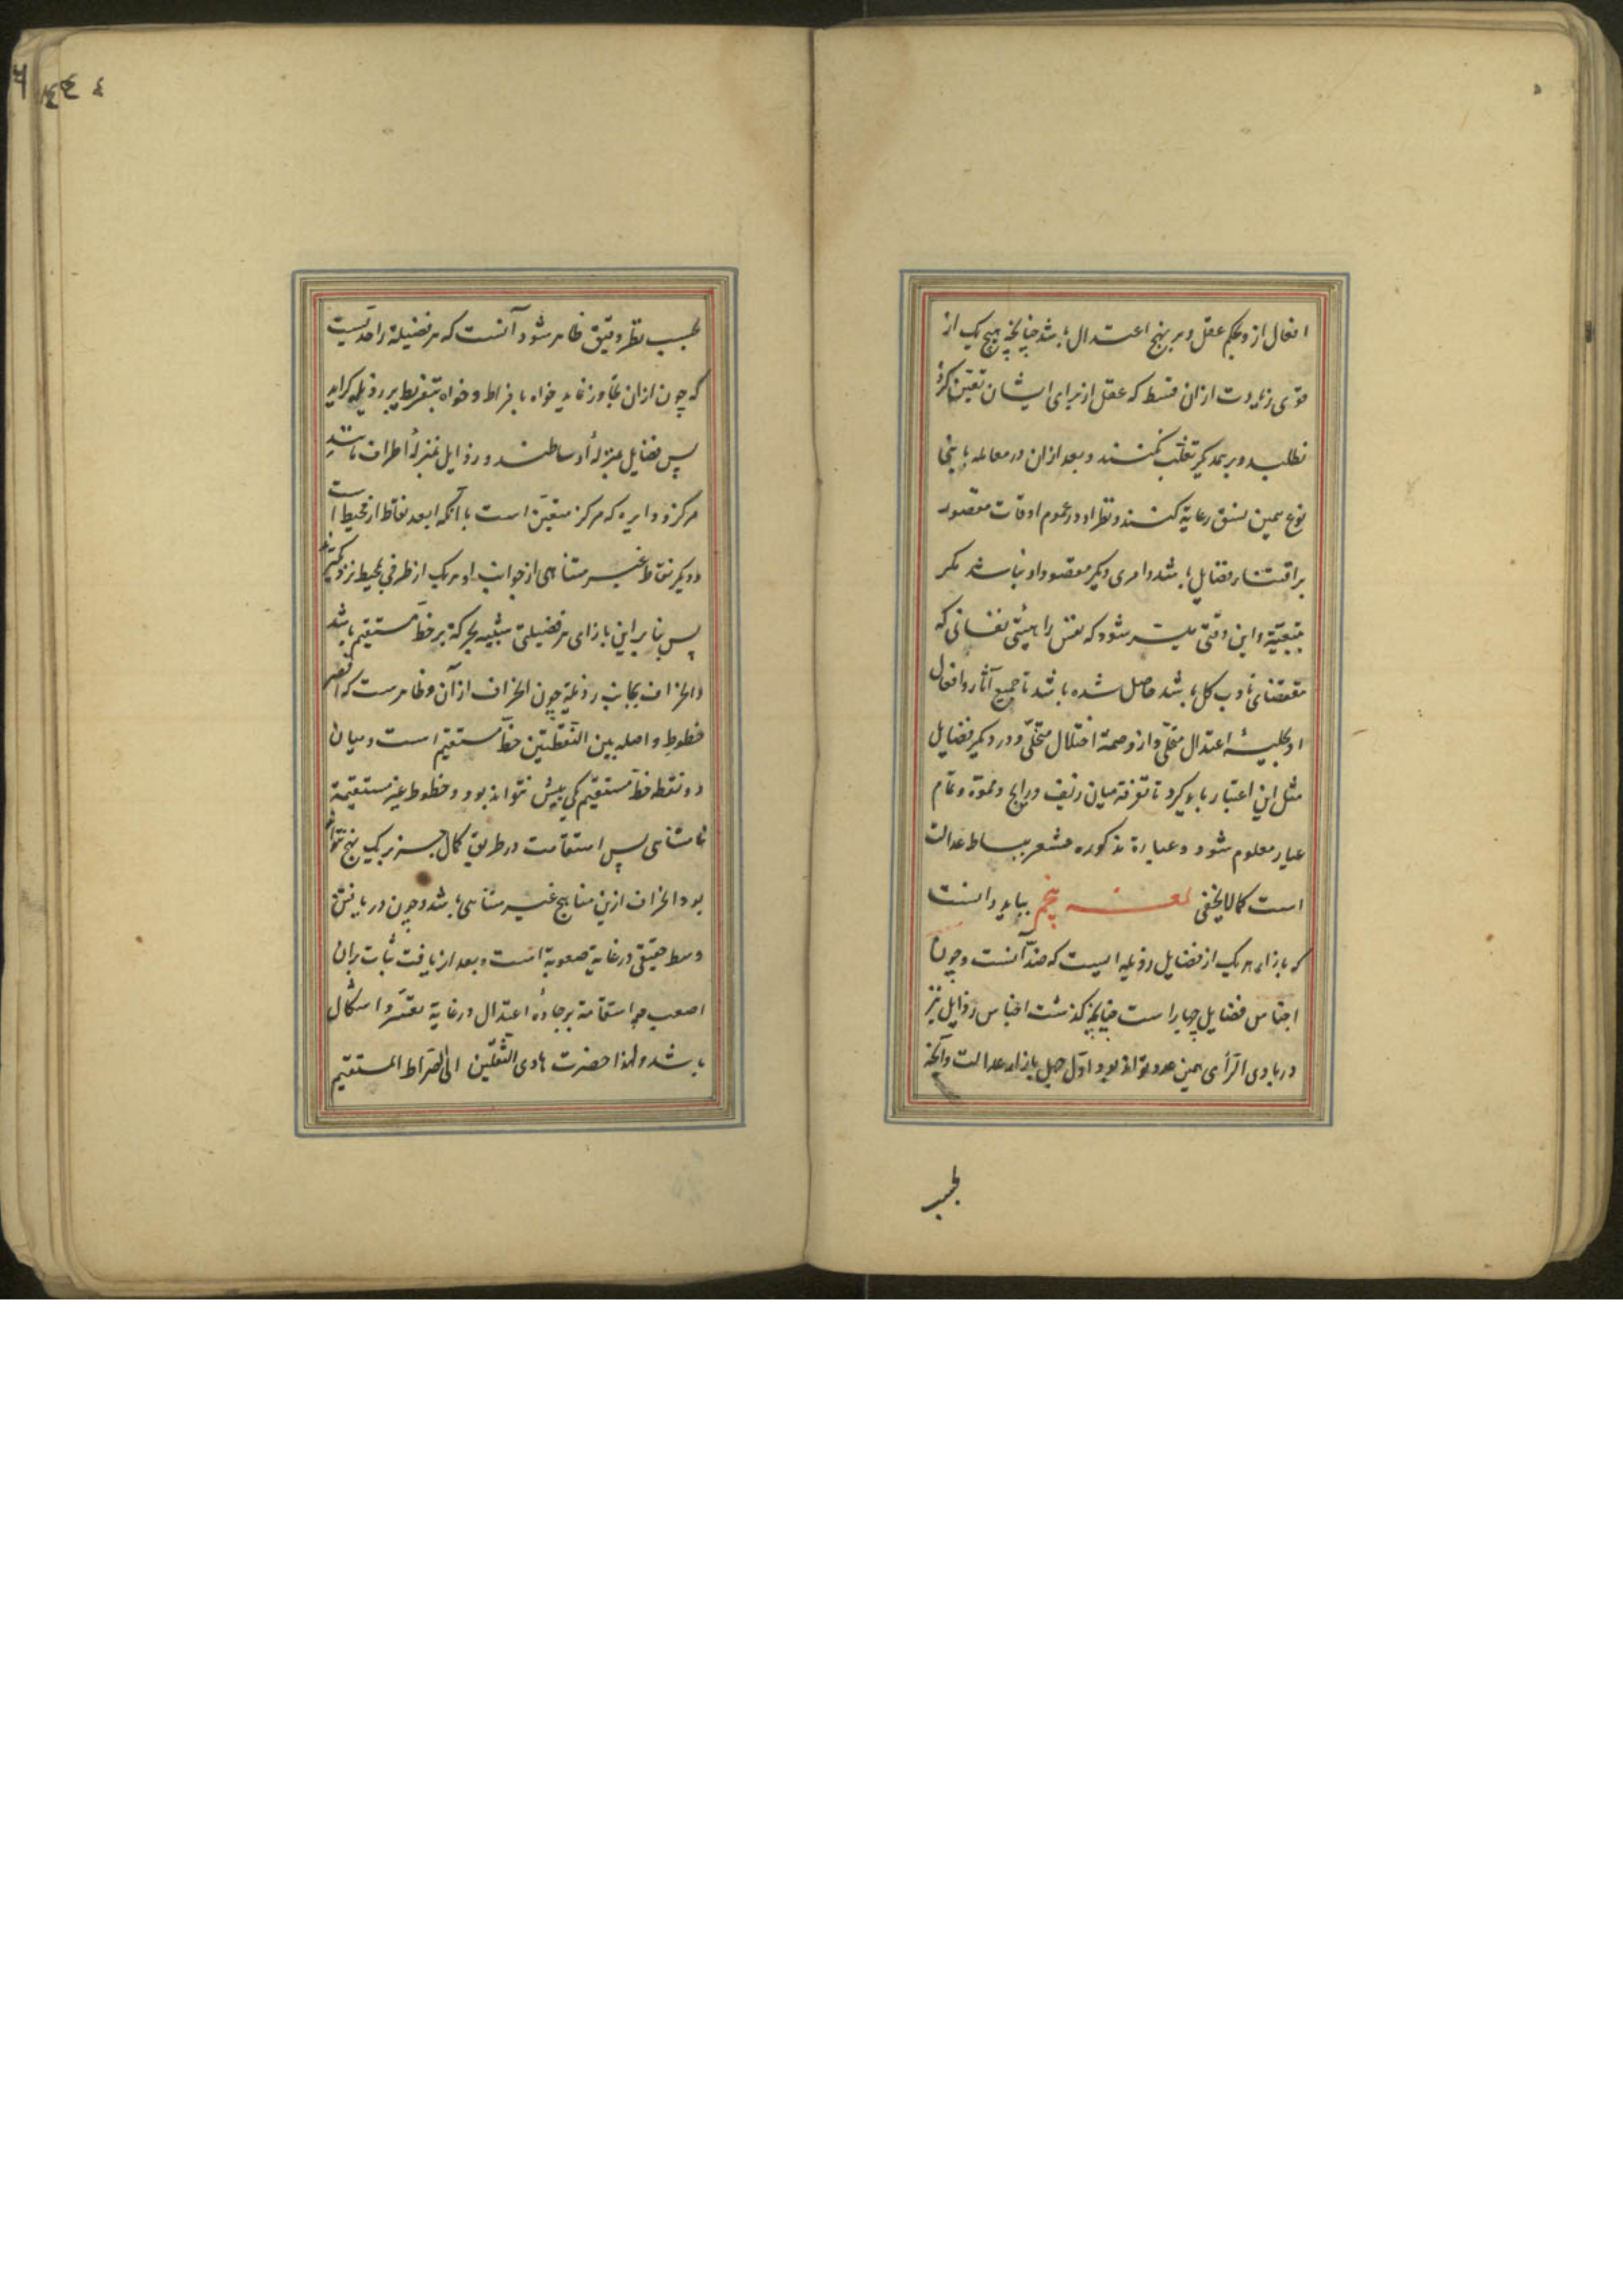 افعال ازو بحکم عقل و بر نهج اعتدال باشد چنانچه هیچ یک از
قوی زیادت از آن قسط که عقل از برای ایشان تعیین کرد
نطلبد و بر یکدیگر تغلّب نکنند و بعد از آن در معامله با بنی
نوع همین نسق رعایة کنند و نظر او در عموم اوقات مقصور
بر اقتناء فضایل باشد و امری دیگر مقصود او نباشد مگر
بتبعیّة و این وقتی میسّر شود که نفس را هیئتی نفسانی که
مقتضای تادب کلی باشد حاصل شده باشد تا جمیع آثار و افعال
او بحلیهٔ اعتدال متحلّی و از وصمة اختلال متخلّی و در دیگر فضایل
مثل این اعتبار باید کرد تا تفرقه میان زیف و رایج و مموّه و تمام
عیار معلوم شود و عبارة مذکوره مشعر ببساط عدالت
است کما لا یخفی لمعه پنجم بباید دانست
که بازاء هر یک از فضایل رذیله ایست که ضدّ آنست و چون
اجناس فضایل چهار است چنانچه گذشت اجناس رذایل نیز
در بادی الرّأی همین عدد تواند بود اوّل جهل بازاء عدالت و آنچه
بحسب
بحسب نظر دقیق ظاهر شود آنست که هر فضیلة را حدّیست
که چون از آن تجاوز نماید خواه بافراط و خواه بتفریط بر رذیله گراید
پس فضایل بمنزلهٔ اوساطند و رذایل بمنزلهٔ اطراف مانند
مرکز و دایره که مرکز متعیّن است با آنکه ابعد نقاط از محیط است
و دیگر نقاط غیر متناهی از جوانب او هر یک از طرفی بمحیط نزدیکتر
پس بنابر این بازای هر فضیلتی شبیه بحرکة بر خطّ مستقیم باشد
و انحراف بجانب رذیلة چون انحراف از آن و ظاهرست که اقصر
خطوط واصله بین النّقطتین خطّ مستقیم است و میان
دو نقطه خطّ مستقیم یکی بیش نتواند بود و خطوط غیر مستقیمة
نامتناهی پس استقامت در طریق کمال جز بر یک نهج نتواند
بود و انحراف ازین مناهج غیر متناهی باشد و چون دریافتن
وسط حقیقی در غایة صعوبة است و بعد از یافت ثبات بران
اصعب چه استقامة بر جادهٔ اعتدال در غایة تعسّر و اشکال
باشد و لهذا حضرت هادی الثّقلین الی الصّراط المستقیم